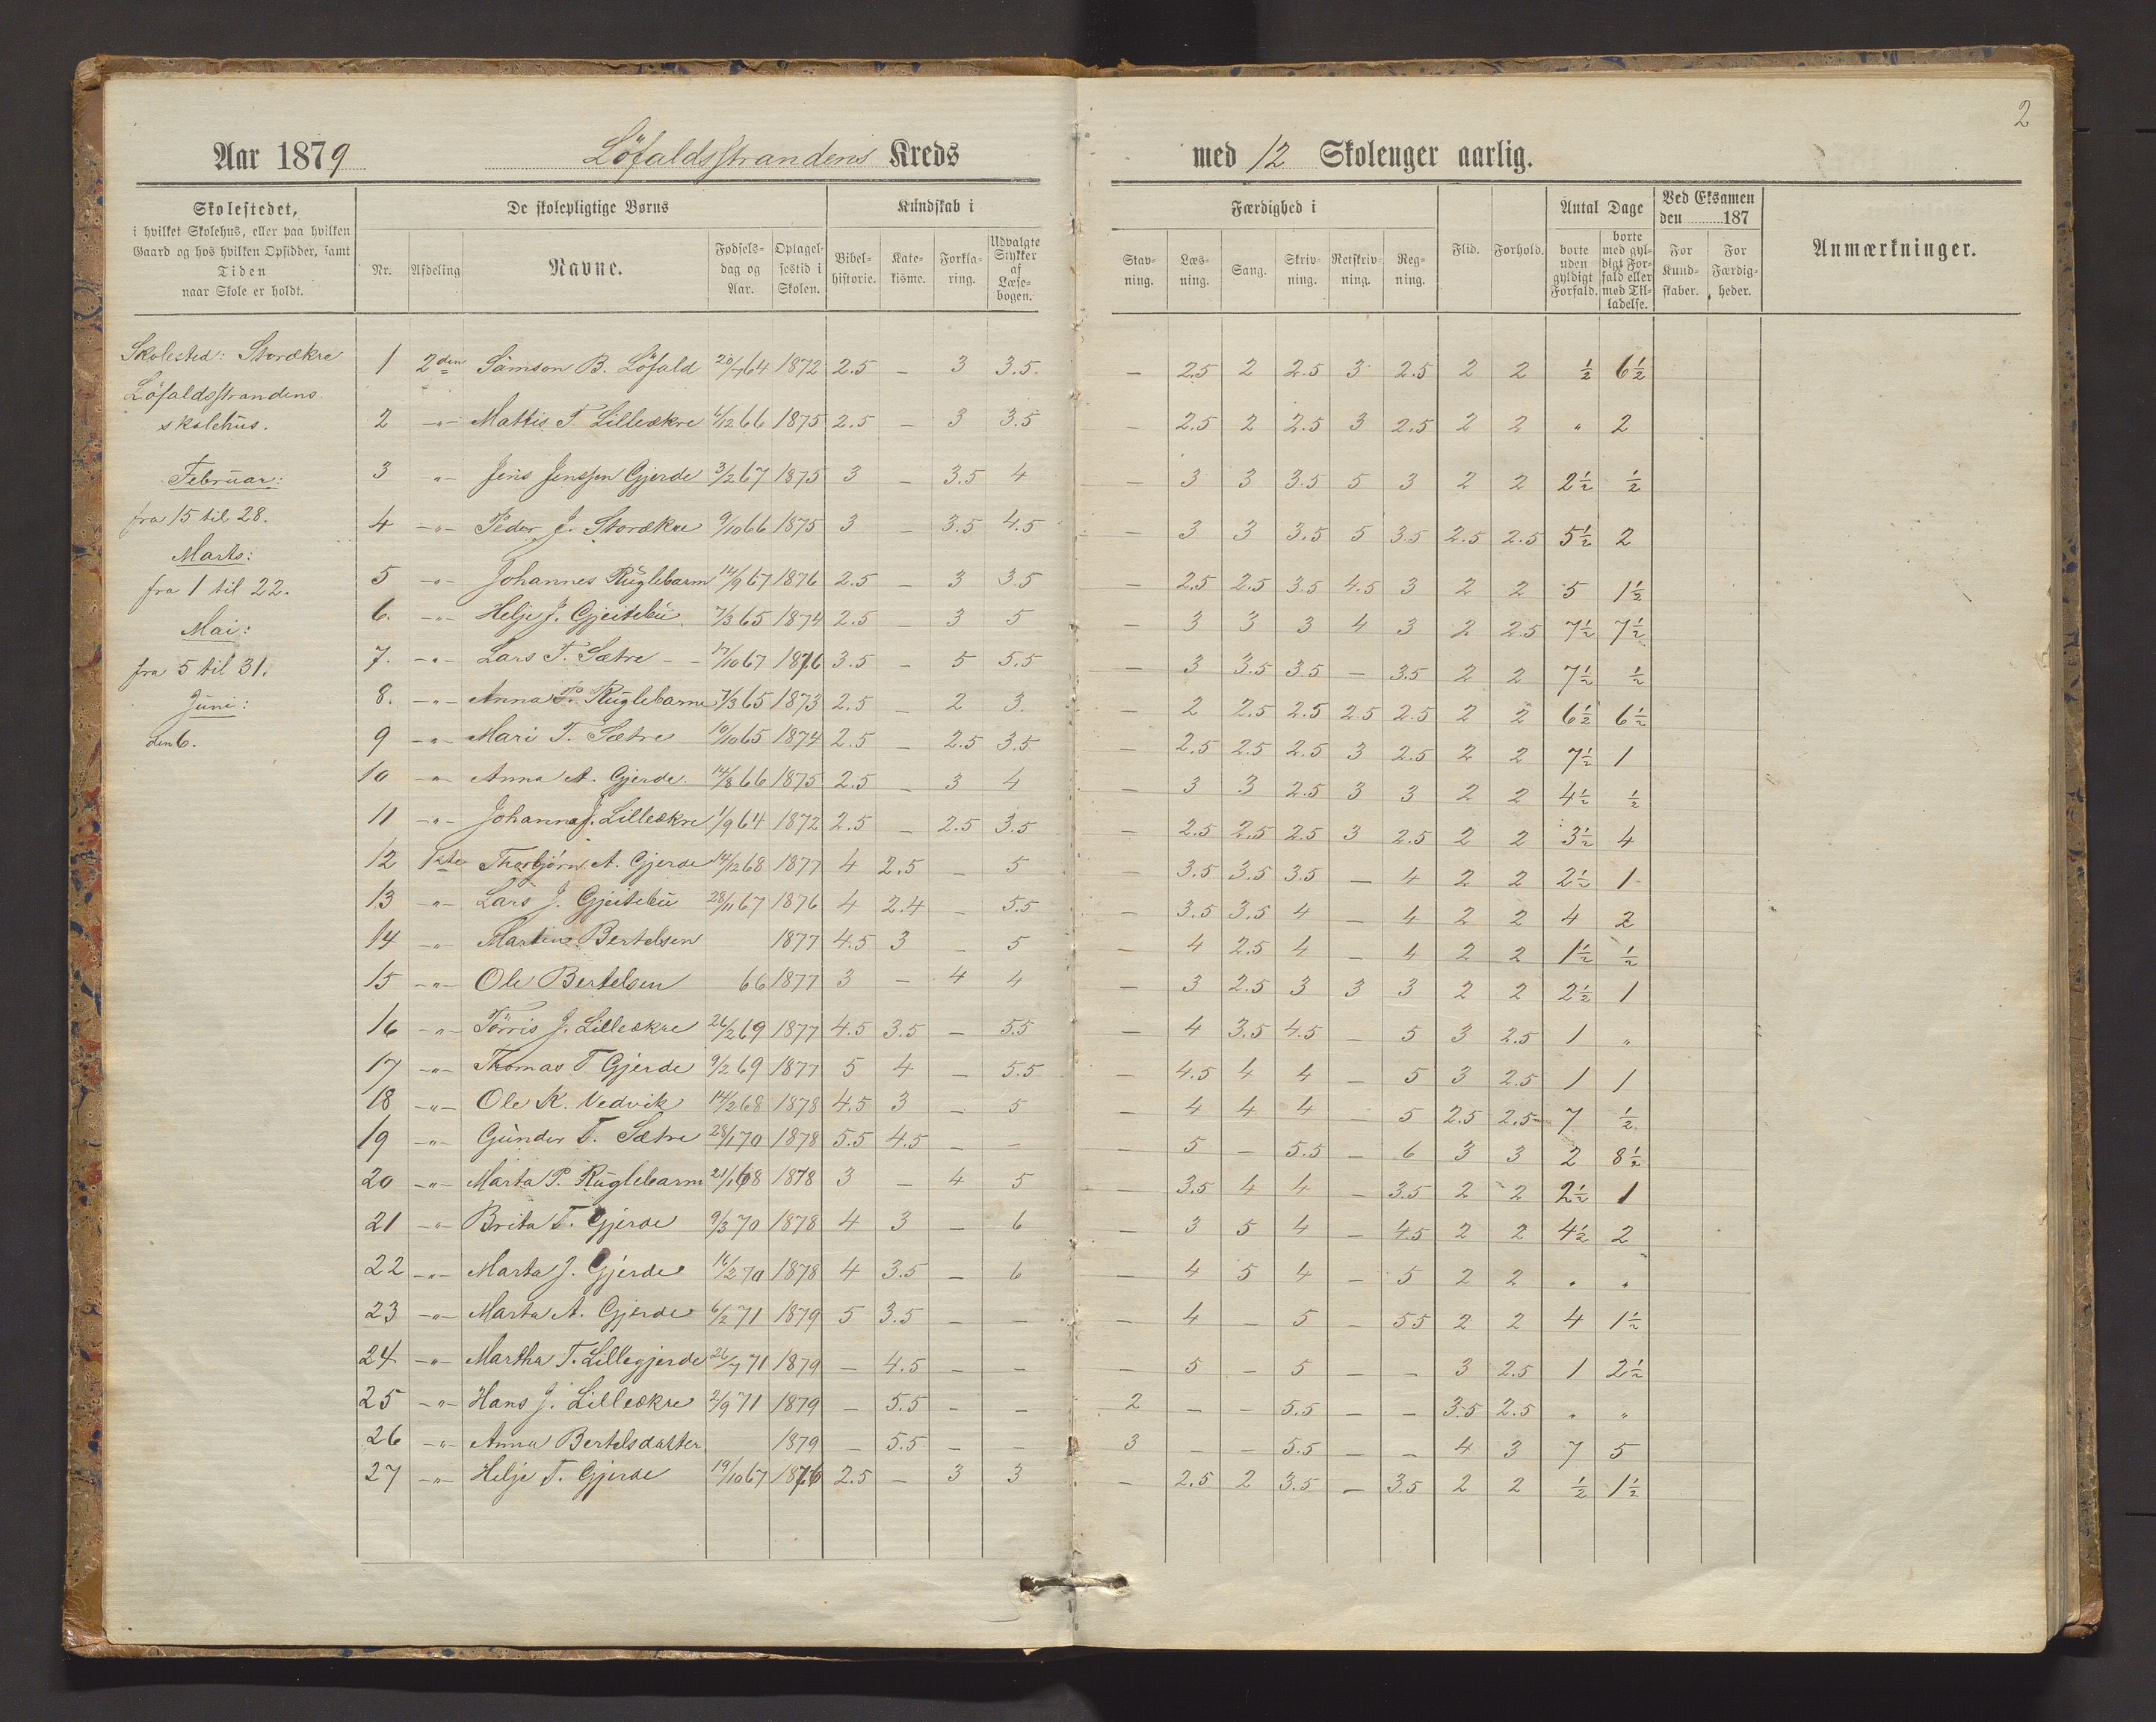 2
Aar 1879 Löfaldsstrandens Kreds med 12 Skoleuger aarlig.
Skolestedet,
i hvilket Skolehus, eller paa hvilken
Gaard og hos hvilken Opsidder, samt
Tiden
naar Skole er holdt.
De skolepligtige Børns
Nr. Afdeling Navne. Fødsels-dag og Aar. Optagel-sestid i Skolen.
Kundskab i
Bibel-historie. Kate-kisme. Forkla-ring. Udvalgte Stykker af Læse-bogen.
Færdighed i
Stav-ning. Læs-ning. Sang. Skriv-ning. Retskriv-ning. Reg-ning.
Flid. Forhold.
Antal Dage
borte uden gyldigt Forfald. borte med gyl-digt For-fald eller med Til-ladelse.
Ved Eksamen den 187
For Kund-skaber. For Færdig-heder.
Anmærkninger.
Skolested: Storækre
Löfaldsstrandens
skolehus.
Februar:
fra 15 til 28.
Marts:
fra 1 til 22.
Mai:
fra 5 til 31.
Juni:
den 6.
1 2den Samson B. Löfald 20/7 64 1872 2.5 – 3 3.5. – 2.5 2 2.5 3 2.5 2 2 ½ 6½
2 –"– Mattis T. Lilleækre 4/12 66 1875 2.5 – 3 3.5 – 2.5 2 2.5 3 2.5 2 2 " 2
3 " Jens Jenssen Gjerde 3/2 67 1875 3 – 3.5 4 – 3 3 3.5 5 3 2 2 2½ ½
4 –"– Peder J. Storækre 9/10 66 1875 3 – 3.5 4.5 – 3 3 3.5 5 3.5 2.5 2.5 5½ 2
5 –"– Johannes Ruglebarm 14/9 67 1876 2.5 – 3 3.5 – 2.5 2.5 3.5 4.5 3 2 2 5 1½
6. –"– Helje J. Gjeitebu 7/3 65 1874 2.5 – 3 5 – 3 3 3 4 3 2 2.5 7½ 7½
7. –"– Lars T. Sætre 17/10 67 1876 3.5 – 5 5.5 – 3 3.5 3.5 – 3.5 2 2 7½ ½
8. –"– Anna P. Ruglebarm 7/3 65 1873 2.5 – 2 3. – 2 2.5 2.5 2.5 2.5 2 2 6½ 6½
9 –"– Mari T. Sætre 10/10 65 1874 2.5 – 2.5 3.5 – 2.5 2.5 2.5 3 2.5 2 2 7½ 1
10 –"– Anna A. Gjerde 14/8 66 1875 2.5 – 3 4 – 3 3 2.5 3 3 2 2 4½ ½
11 –"– Johanna J. Lilleækre 1/9 64 1872 2.5 – 2.5 3.5 – 2.5 2.5 2.5 3 2.5 2 2 3½ 4
12 1ste Thorbjørn A. Gjerde 14/12 68 1877 4 2.5 – 5 – 3.5 3.5 3.5 – 4 2 2 2½ 1
13 –"– Lars J. Gjeitebu 28/11 67 1876 4 2.4 – 5.5 – 3.5 3.5 4 – 4 2 2 4 2
14 –"– Martine Bertelsen 1877 4.5 3 – 5 – 4 2.5 4 – 4 2 2 1½ ½
15 –"– Ole Bertelsen 66 1877 3 – 4 4 – 3 2.5 3 3 3 2 2 2½ 1
16 –"– Törris J. Lilleækre 26/2 69 1877 4.5 3.5 – 5.5 – 4 3.5 4.5 – 5 3 2.5 1 "
17 –"– Thomas T Gjerde 9/2 69 1877 5 4 – 5.5 – 4.5 4 4 – 5 3 2.5 1 1
18 –"– Ole K. Vedvik 14/2 68 1878 4.5 3 – 5 – 4 4 4 – 5 2.5 2.5 7 ½
19 –"– Gunder T. Sætre 28/1 70 1878 5.5 4.5 – – – 5 – 5.5 – 6 3 3 2 8½
20 –"– Marta P. Ruglebarm 21/1 68 1878 3 – 4 5 – 3.5 4 4 – 3.5 2 2 2½ 1
21 –"– Brita T. Gjerde 9/3 70 1878 4 3 – 6 – 3 5 4 – 4.5 2 2 4½ 2
22 –"– Marta J. Gjerde 16/2 70 1878 4 3.5 – 6 – 4 5 4 – 5 2 2 " "
23 –"– Marta A. Gjerde 6/2 71 1879 5 3.5 – – – 4 – 5 – 5.5 2 2 4 1½
24 –"– Martha T. Lillegjerde 26/7 71 1879 – 4.5 – – – 5 – 5 – – 3 2.5 1 2½
25 –"– Hans J. Lilleækre 2/9 71 1879 – 5.5 – – 2 – – 5.5 – – 3.5 2.5 " "
26 –"– Anna Bertelsdatter 1879 – 5.5 – – 3 – – 5.5 – – 4 3 7 5
27 –"– Helje T. Gjerde 19/10 67 1876 2.5 – 3 3 – 2.5 2 3.5 – 3.5 2 2 ½ 1½